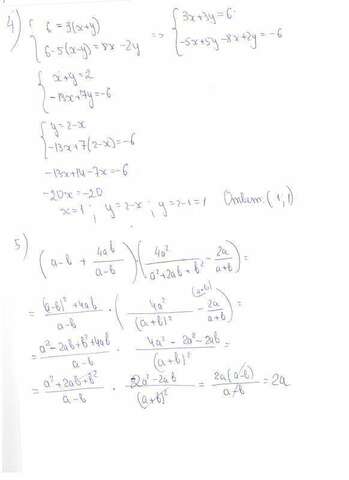 4) { 6 = 3(x+y) => { 3x+3y=6
6-5(x-y)=8x-2y -5x+5y-8x+2y=-6
{ x+y=2
-13x+7y=-6
{ y=2-x
-13x+7(2-x)=-6
-13x+14-7x=-6
-20x=-20
x=1; y=2-x; y=2-1=1 Ответ: (1;1)
5)
(a-b + 4ab/(a-b)) · (4a²/(a²+2ab+b²) - 2a/(a+b)) =
= ((a-b)²+4ab)/(a-b) · (4a²/(a+b)² - 2a/(a+b) (a+b)) =
= (a²-2ab+b²+4ab)/(a-b) · (4a²-2a²-2ab)/(a+b)² =
= (a²+2ab+b²)/(a-b) · (2a²-2ab)/(a+b)² = 2a(a-b)/(a-b) = 2a